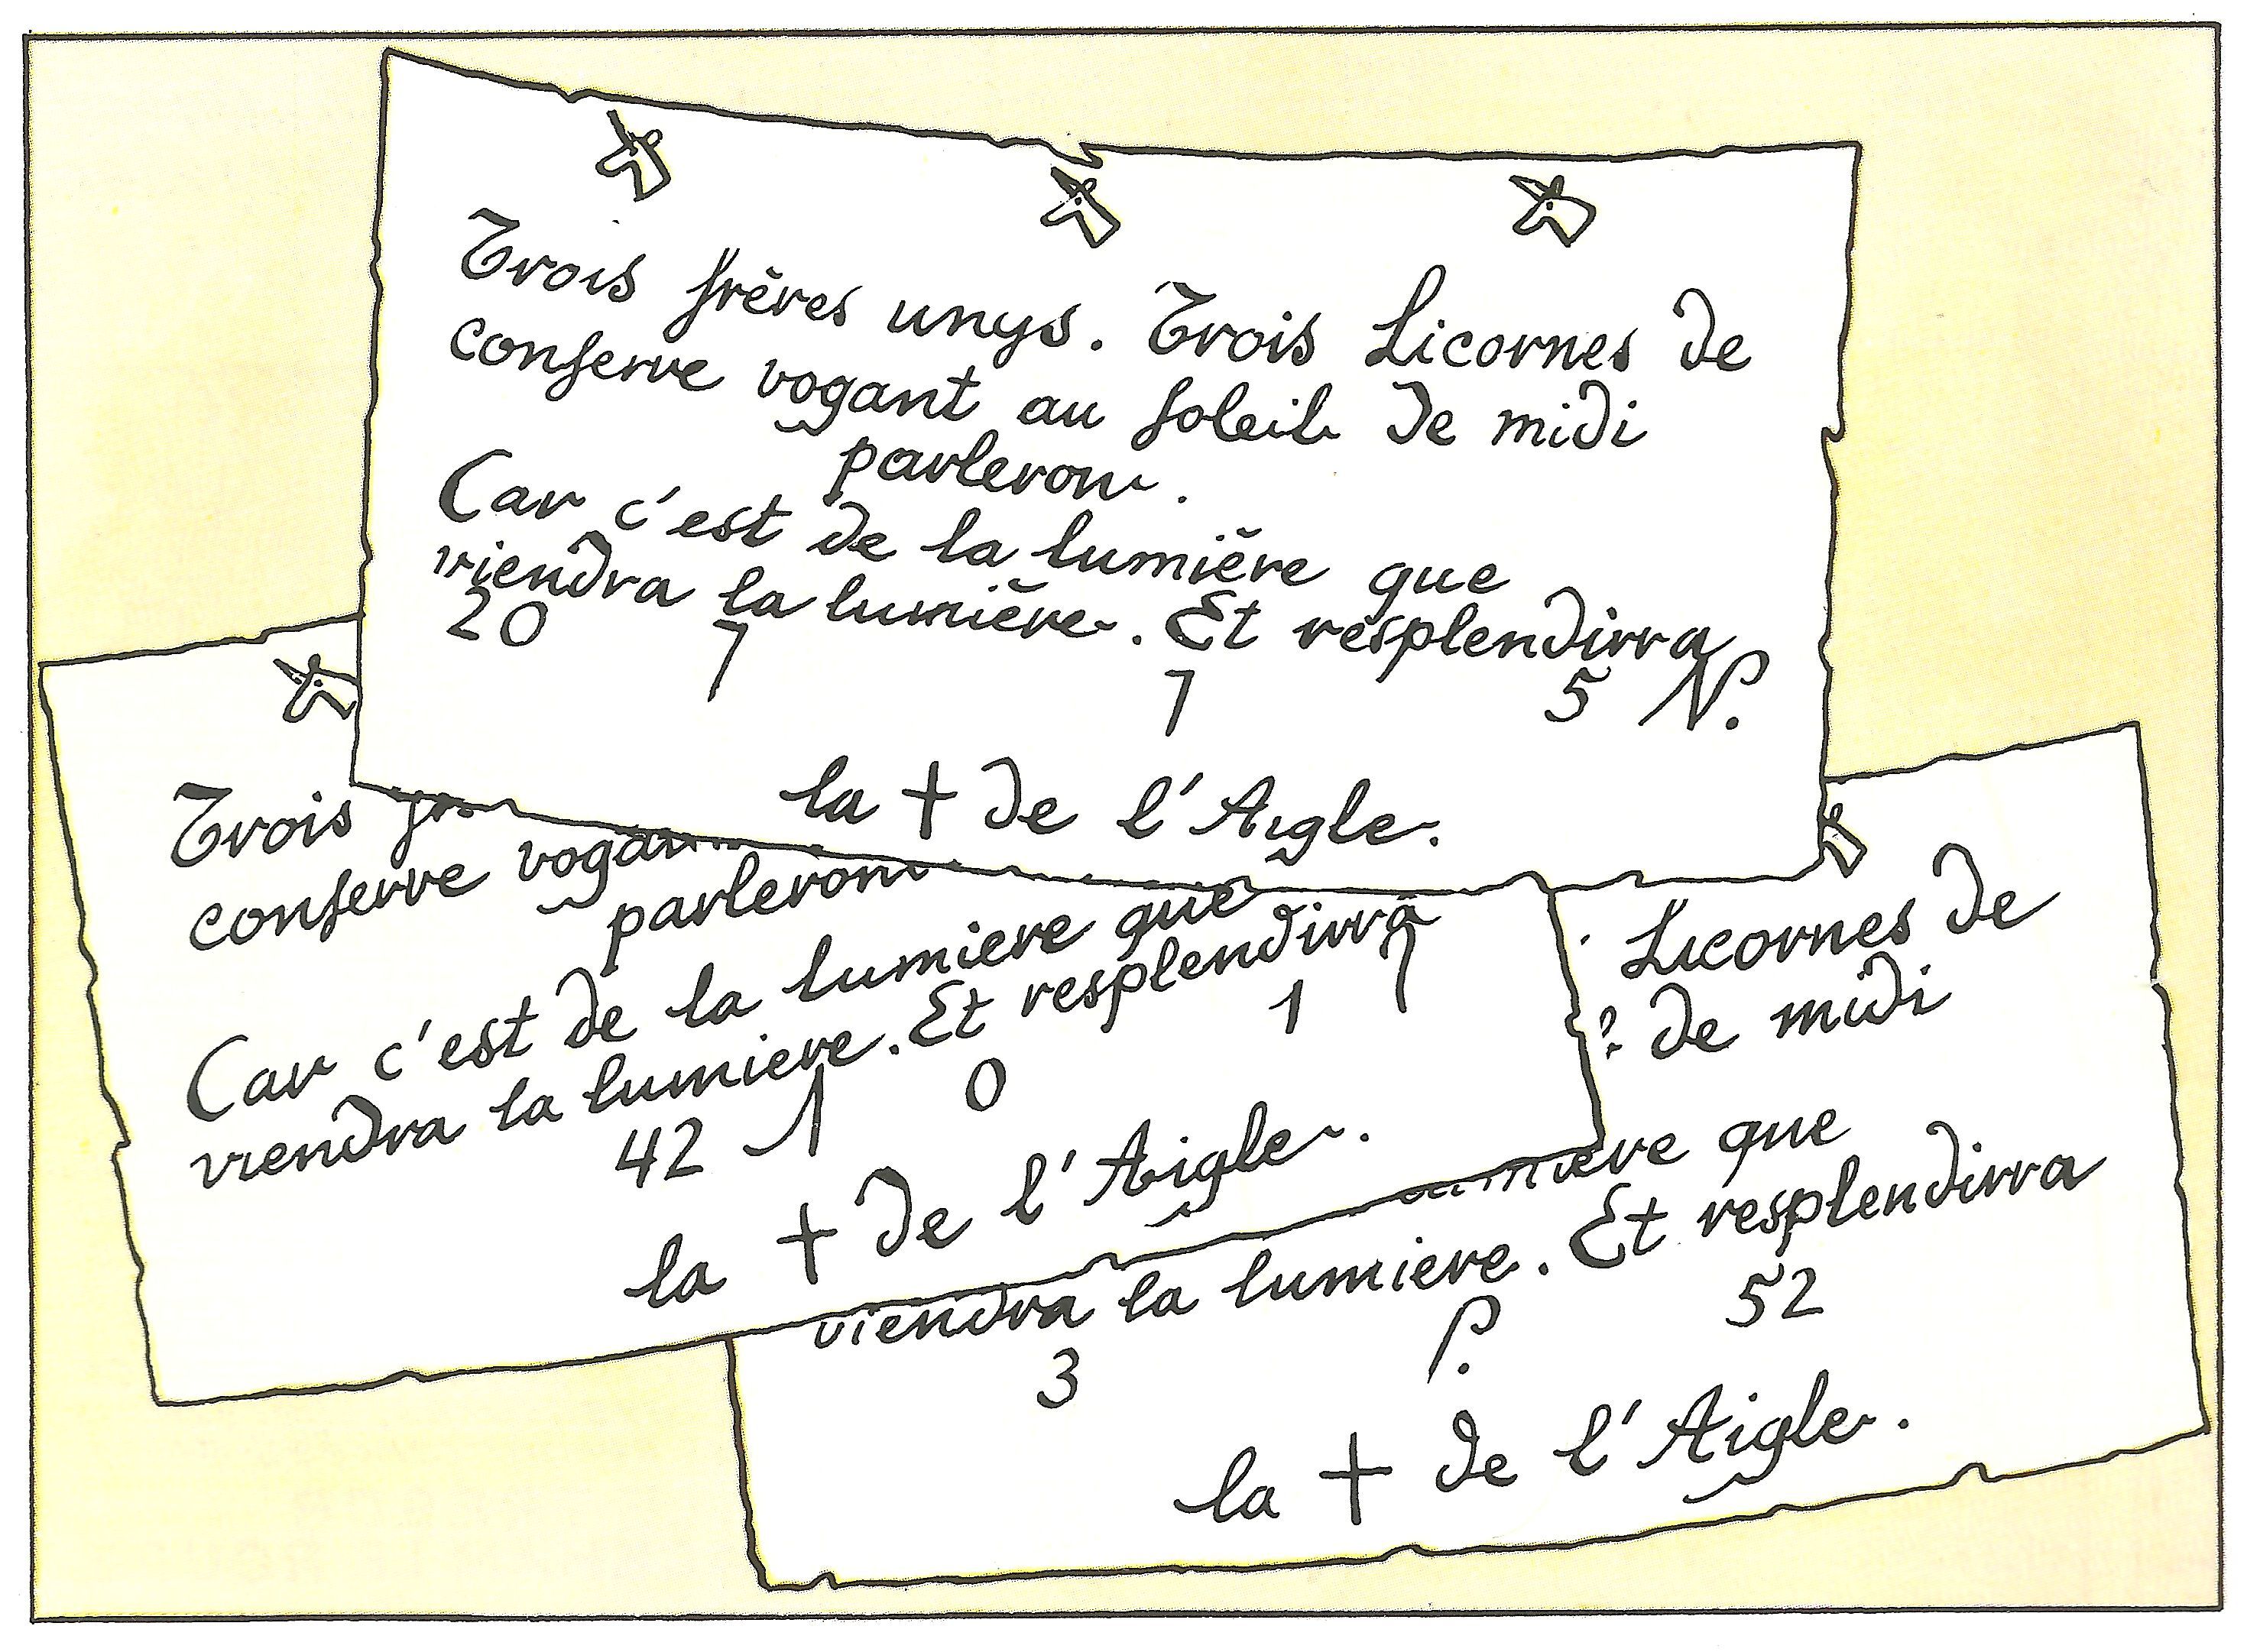 Trois frères unys. Trois Licornes de
conserve vogant au soleil de midi
parleront.
Car c'est de la lumière que
viendra la lumière. Et resplendirra
20 7 7 5 N.
la + de l'Aigle.
Trois
conserve vogant
parleront
Car c'est de la lumiere que
viendra la lumiere. Et resplendirra
42 0 1
la + de l'Aigle.
Licornes de
de midi
que
viendra la lumiere. Et resplendirra
3 52
la + de l'Aigle.